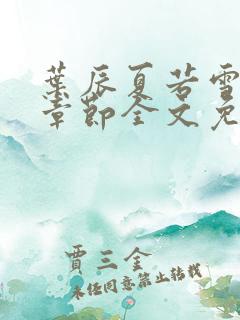 葉辰夏若雪
章節全文免
賈三金
未经同意禁止转载